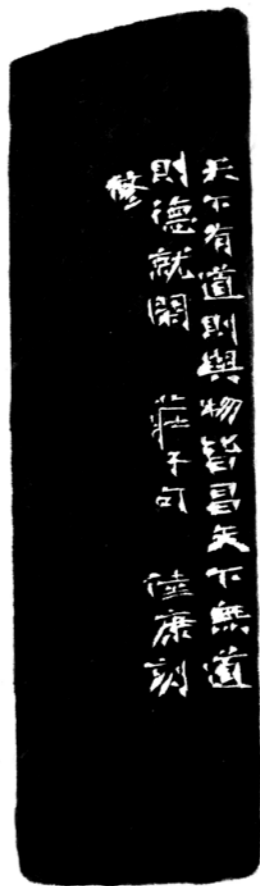 天下有道則與物皆昌天下無道
則德就閒 莊子句 陸康刻